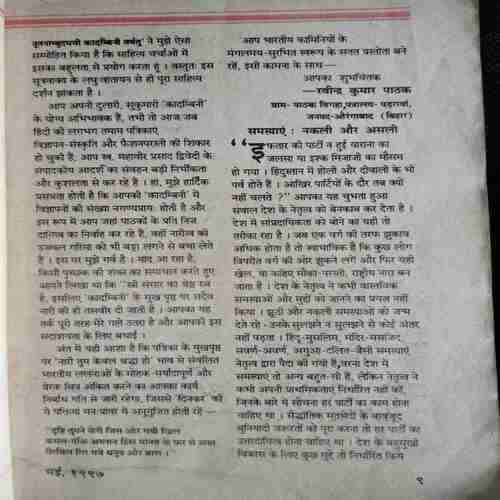 ने मुझे ऐसा
सम्मोहित किया है कि साहित्य चर्चाओं में
इसका बहुलता से प्रयोग करता हूं । वस्तुतः इस
सूत्रवाक्य के लघु वातायन से ही पूरा साहित्य
दर्शन झांकता है ।
आप अपनी दुलारी, सुकुमारी 'कादम्बिनी'
के योग्य अभिभावक हैं, तभी तो आज जब
हिंदी की लगभग तमाम पत्रिकाएं
विज्ञापन-संस्कृति और फैशनपरस्ती की शिकार
हो चुकी हैं, आप स्व. महावीर प्रसाद द्विवेदी के
संपादकीय आदर्श का संवहन बड़ी निर्भीकता
और कुशलता से कर रहे हैं । हां, मुझे हार्दिक
प्रसन्नता होती है कि आपकी 'कादम्बिनी' में
विज्ञापनों की संख्या नगण्यप्रायः होती है और
इस रूप में आप जहां पाठकों के प्रति निज
दायित्व का निर्वाह कर रहे हैं, वहीं नारीत्व की
उज्ज्वल गरिमा को भी बट्टा लगने से बचा लेते
हैं । इस पर मुझे गर्व है । याद आ रहा है,
किसी पृच्छक की शंका का समाधान करते हुए
आपने लिखा था कि "स्त्री संसार का श्रेष्ठ रत्न
है, इसलिए 'कादम्बिनी' के मुख पृष्ठ पर सदैव
नारी की ही तसवीर दी जाती है । आपका यह
तर्क पूरी तरह मेरे गले उतरा है और आपकी इस
सदाशयता के लिए बधाई ।
अंत में यही आशा है कि पत्रिका के मुखपृष्ठ
पर 'नारी तुम केवल श्रद्धा हो' भाव से संवलित
भारतीय ललनाओं के मोहक-मर्यादापूर्ण और
प्रेरक चित्र अंकित करने का आपका कार्य
निर्बाध गति से जारी रहेगा, जिससे 'दिनकर' की
ये पंक्तियां मन प्राणों में अनुगुंजित होती रहें —
मई, १९९७
आप भारतीय कामिनियों के
मंगलमय-सुरभित स्वरूप के सतत प्रस्तोता बने
रहें, इसी कामना के साथ—
आपका शुभचिंतक
—रवीन्द्र कुमार पाठक
ग्राम- पाठक बिगहा, पत्रालय- पड़रावां,
जनपद-औरंगाबाद (बिहार)
समस्याएं : नकली और असली
"इफ्तार की पार्टी न हुई याराना का
जलसा या इश्क मिजाजी का मौसम
हो गया । हिंदुस्तान में होली और दीवाली के भी
पर्व होते हैं । आखिर पार्टियों के दौर तब क्यों
नहीं चलते ?" आपका यह चुभता हुआ
सवाल देश के नेतृत्व को बेनकाब कर देता है ।
देश में सांप्रदायिकता को बोने का यही तो
तरीका रहा है । जब एक वर्ग की तरफ झुकाव
अधिक होता है तो स्वाभाविक है कि कुछ लोग
विपरीत वर्ग की ओर झुकने लगें और फिर यही
खेल, या कहिए मौका-परस्ती, राष्ट्रीय नारा बन
जाता है । देश के नेतृत्व ने कभी वास्तविक
समस्याओं और मुद्दों को जानने का प्रयत्न नहीं
किया । झूठी और नकली समस्याओं को जन्म
देते रहे - उनके सुलझने न सुलझने से कोई अंतर
नहीं पड़ता । हिंदू-मुसलिम, मंदिर-मसजिद,
सवर्ण-अवर्ण, अगुआ-दलित-जैसी समस्याएं
नेतृत्व द्वारा पैदा की गयी हैं, वरना देश में
समस्याएं तो अन्य बहुत-सी हैं, लेकिन नेतृत्व ने
कभी अपनी प्राथमिकताएं निर्धारित नहीं कीं,
जिनके बारे में सोचना हर पार्टी का काम होना
चाहिए था । सैद्धांतिक मतभेदों के बावजूद
बुनियादी जरूरतों को पूरा करना तो हर पार्टी का
उत्तरदायित्व होना चाहिए था । देश के बहुमुखी
विकास के लिए कुछ मुद्दे तो निर्धारित किये
९